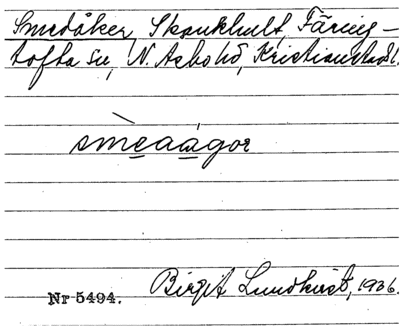 Smedåker, Skankhult, Färing-
tofta sn, N. Åsbo hd, Kristianstads l.
smeaågor
Birgit Lundkvist, 1936.
Nr 5494.